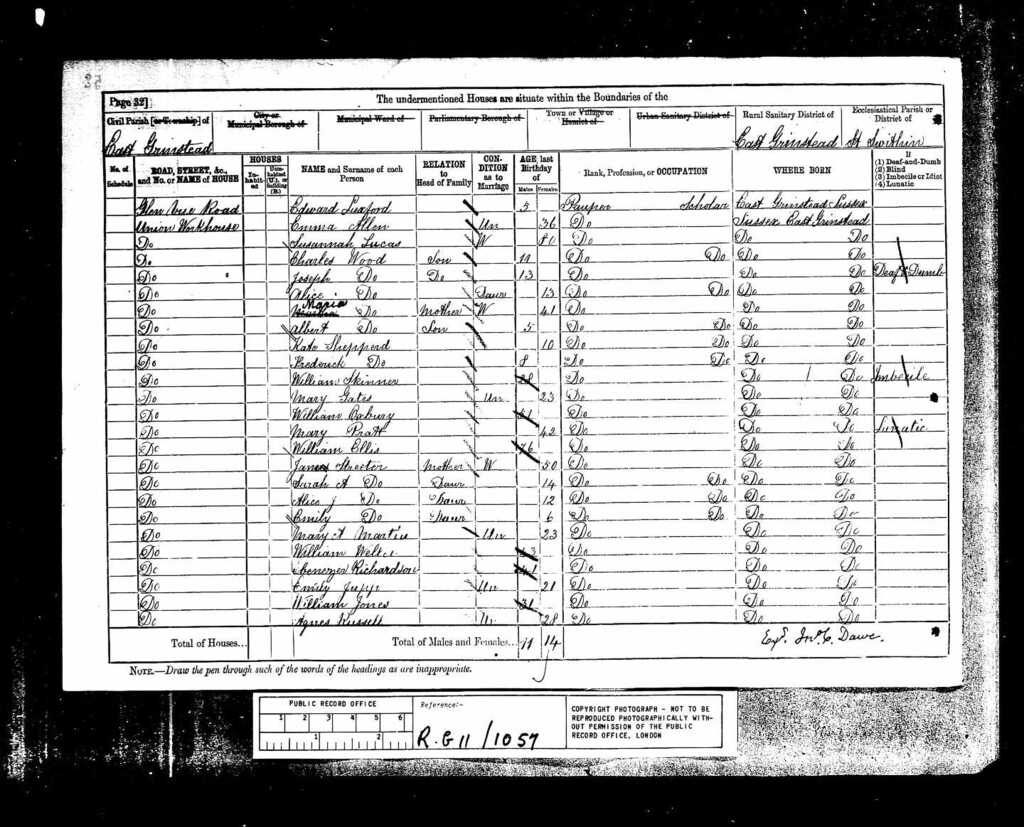 Page 32]
The undermentioned Houses are situate within the Boundaries of the
Civil Parish [or Township] of
City or Municipal Borough of
Municipal Ward of
Parliamentary Borough of
Town or Village or Hamlet of
Urban Sanitary District of
Rural Sanitary District of
Ecclesiastical Parish or District of
East Grinstead East Grinstead St Swithin
No. of Schedule
ROAD, STREET, &c., and No. or NAME of HOUSE
HOUSES
Inhabited
Uninhabited (U.), or Building (B.)
NAME and Surname of each Person
RELATION to Head of Family
CONDITION as to Marriage
AGE last Birthday of
Males Females
Rank, Profession, or OCCUPATION
WHERE BORN
If
(1) Deaf-and-Dumb
(2) Blind
(3) Imbecile or Idiot
(4) Lunatic
Glen Vue Road Edward Luxford 5 Pauper Scholar East Grinstead Sussex
Union Workhouse Emma Allen Un 36 Do Sussex East Grinstead
Do Susannah Lucas W 80 Do Do Do
Do Charles Wood Son 11 Do Do Do Do
Do Joseph Do Do 13 Do Do Do Deaf & Dumb
Do Alice Do Daur 13 Do Do Do Do
Do Maria Do Mother W 41 Do Do Do
Do Albert Do Son 5 Do Do Do Do
Do Kate Shepperd 10 Do Do Do Do
Do Frederick Do 8 Do Do Do Do
Do William Skinner Do Do Do Imbecile
Do Mary Gates Un 23 Do Do Do
Do William Oxbury Do Do Do
Do Mary Pratt 42 Do Do Do Lunatic
Do William Ellis 76 Do Do Do
Do Streeter Mother W 50 Do Do Do
Do Sarah A Do Daur 14 Do Do Do Do
Do Alice J Do Daur 12 Do Do Do Do
Do Emily Do Daur 6 Do Do Do Do
Do Mary A Martin Un 23 Do Do Do
Do William Do Do Do
Do Ebenezer Richardson Do Do Do
Do Emily Jupp Un 21 Do Do Do
Do William Jones 31 Do Do Do
Do Agnes Russell Un 28 Do Do Do
Total of Houses... Total of Males and Females... 11 14
NOTE.—Draw the pen through such of the words of the headings as are inappropriate.
PUBLIC RECORD OFFICE
1 2 3 4 5 6
1 2
Reference:-
R.G 11 / 1057
COPYRIGHT PHOTOGRAPH - NOT TO BE
REPRODUCED PHOTOGRAPHICALLY WITH-
OUT PERMISSION OF THE PUBLIC
RECORD OFFICE, LONDON